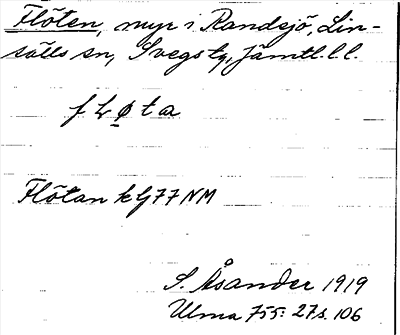 Flöten, myr i Randsjö, Lin-
sälls sn, Svegs tg, Jämtl. l.
f L ø t a
Flötan k G77 NM
S. Åsander 1919
Ulma 755: 27 s. 106